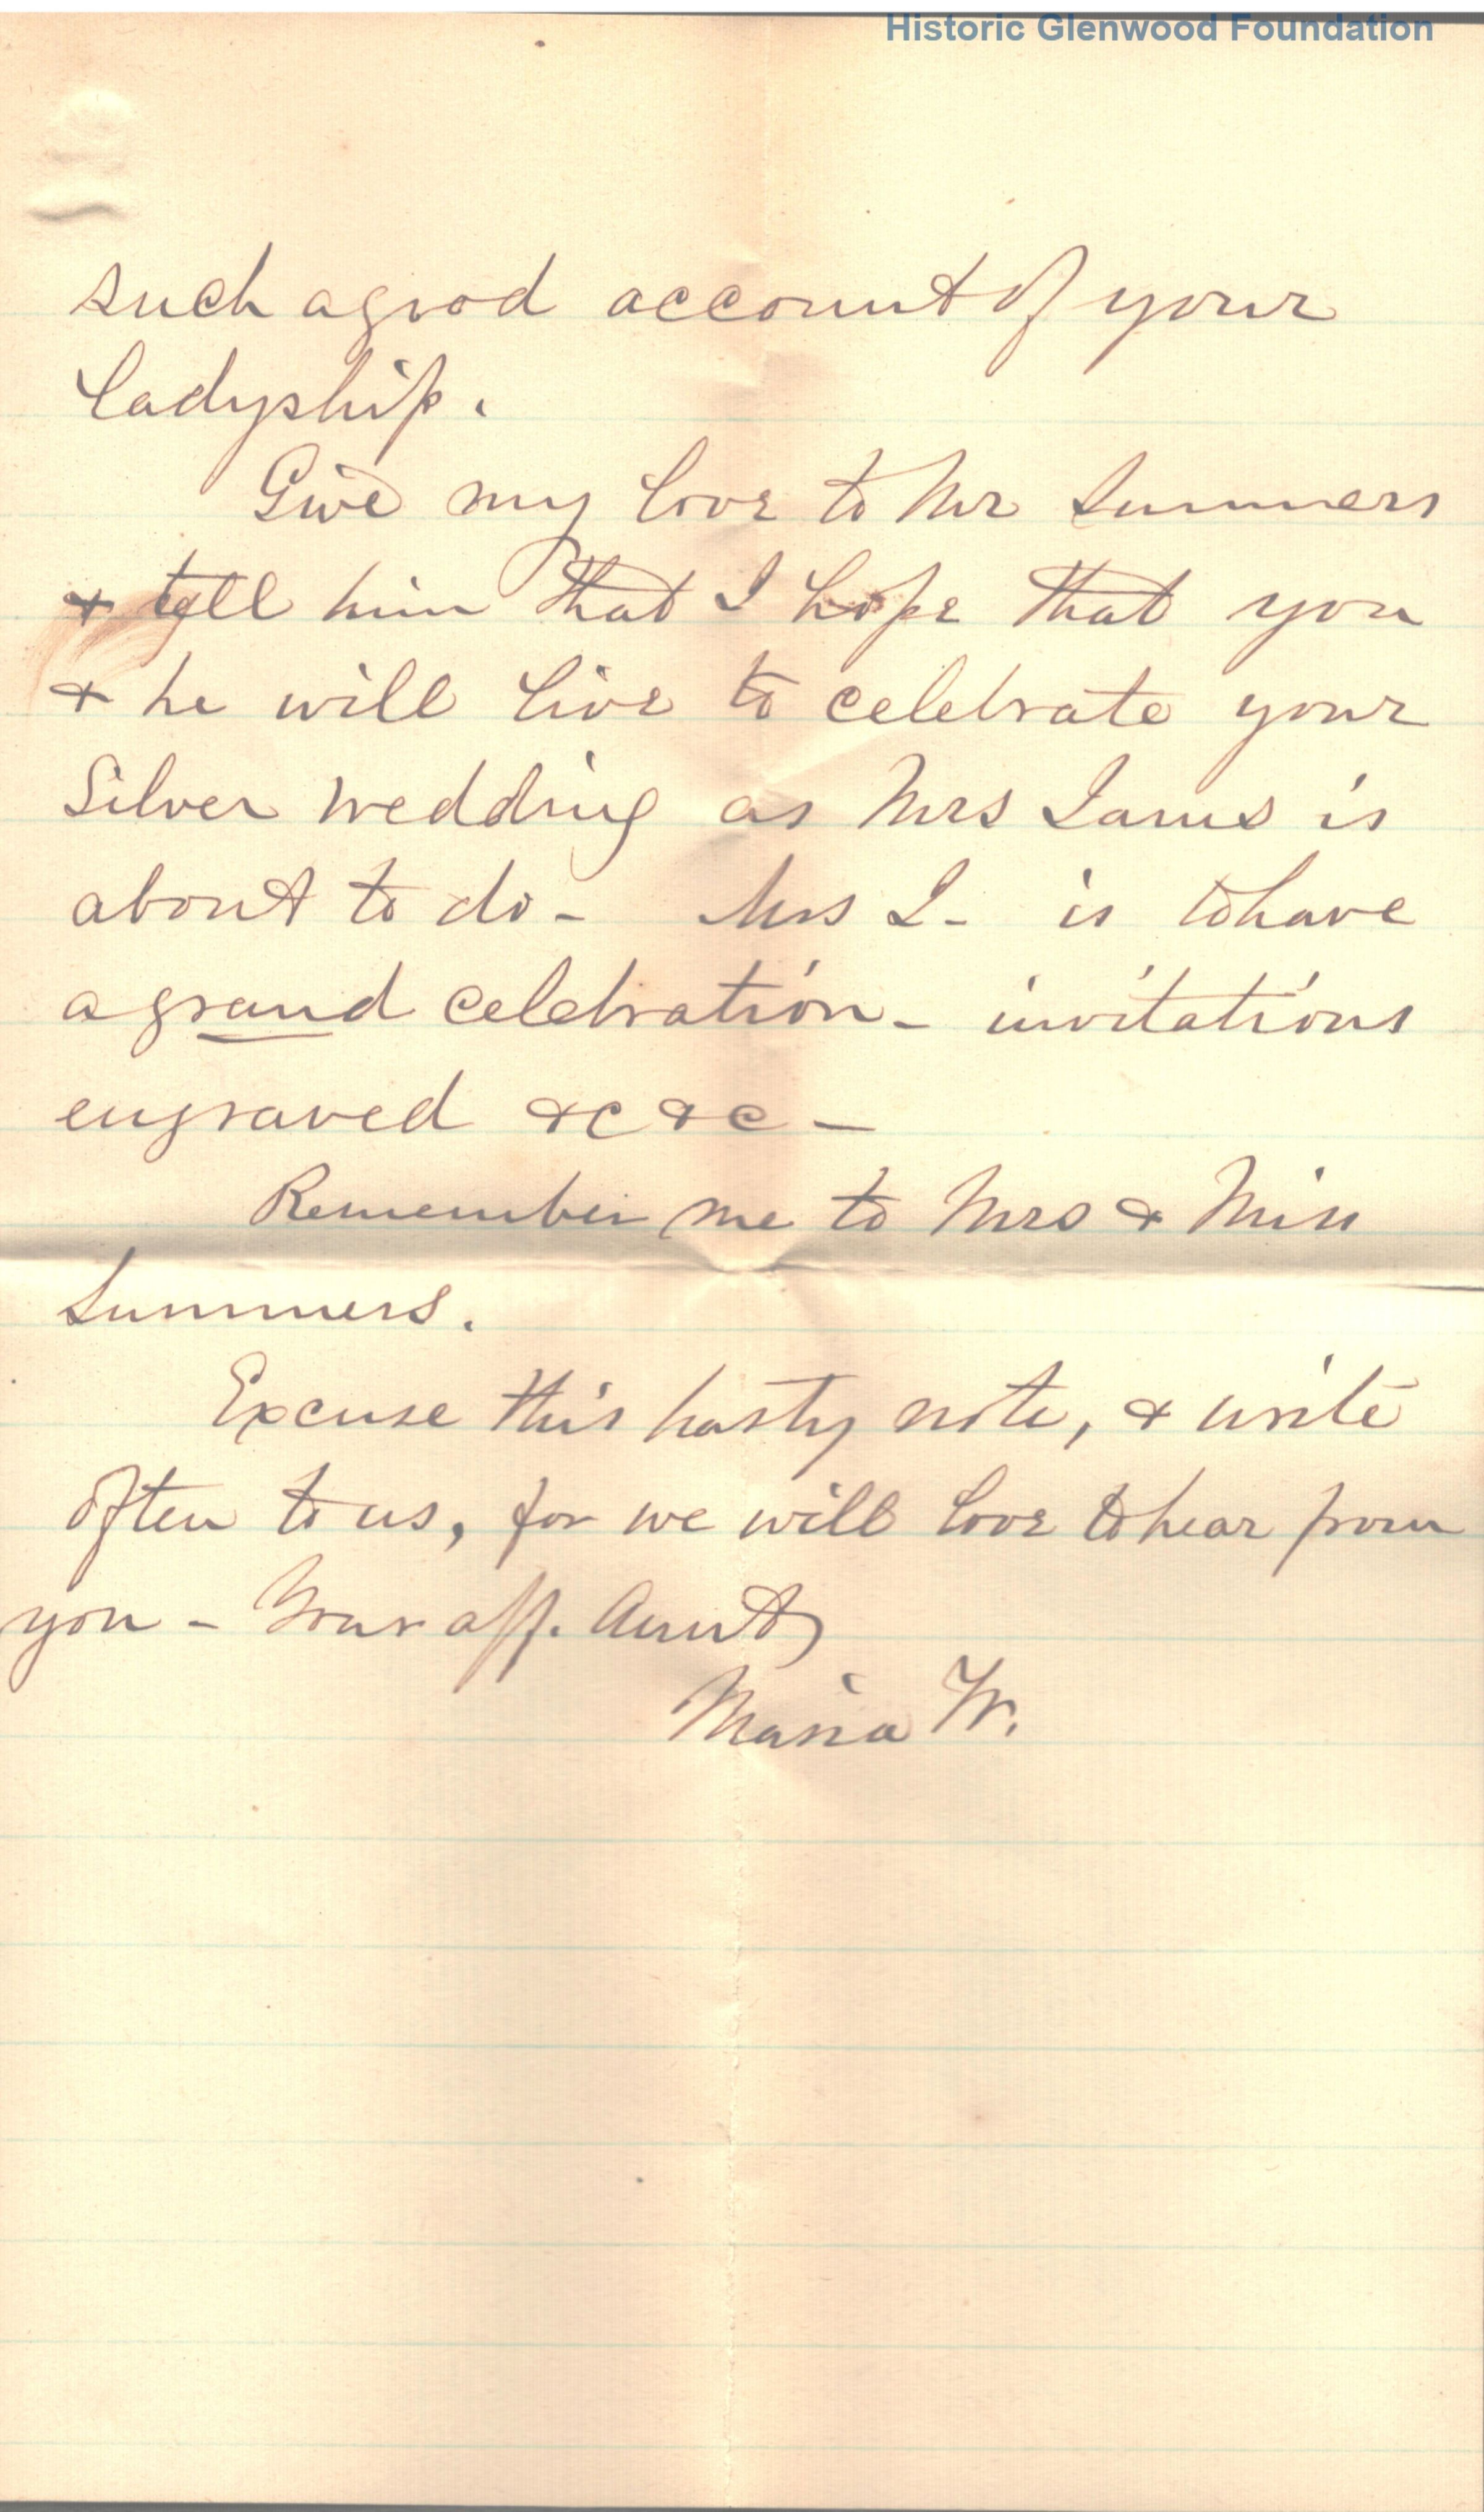 Historic Glenwood Foundation
such a good account of your
Ladyship.
Give my love to Mr Summers
& tell him that I hope that you
& he will live to celebrate your
Silver wedding as Mrs Iams is
about to do - Mrs I- is to have
a grand celebration - invitations
engraved &c &c -
Remember me to Mrs & Miss
Summers.
Excuse this hasty note, & write
often to us, for we will love to hear from
you - Your aff. Aunt,
Maria W.